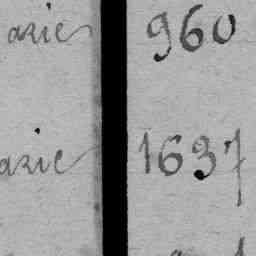 arie 960
arie 1637